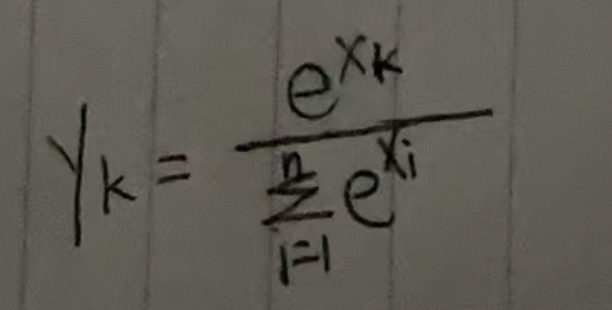 y_k = \frac{e^{x_k}}{\sum_{i=1}^{n} e^{x_i}}